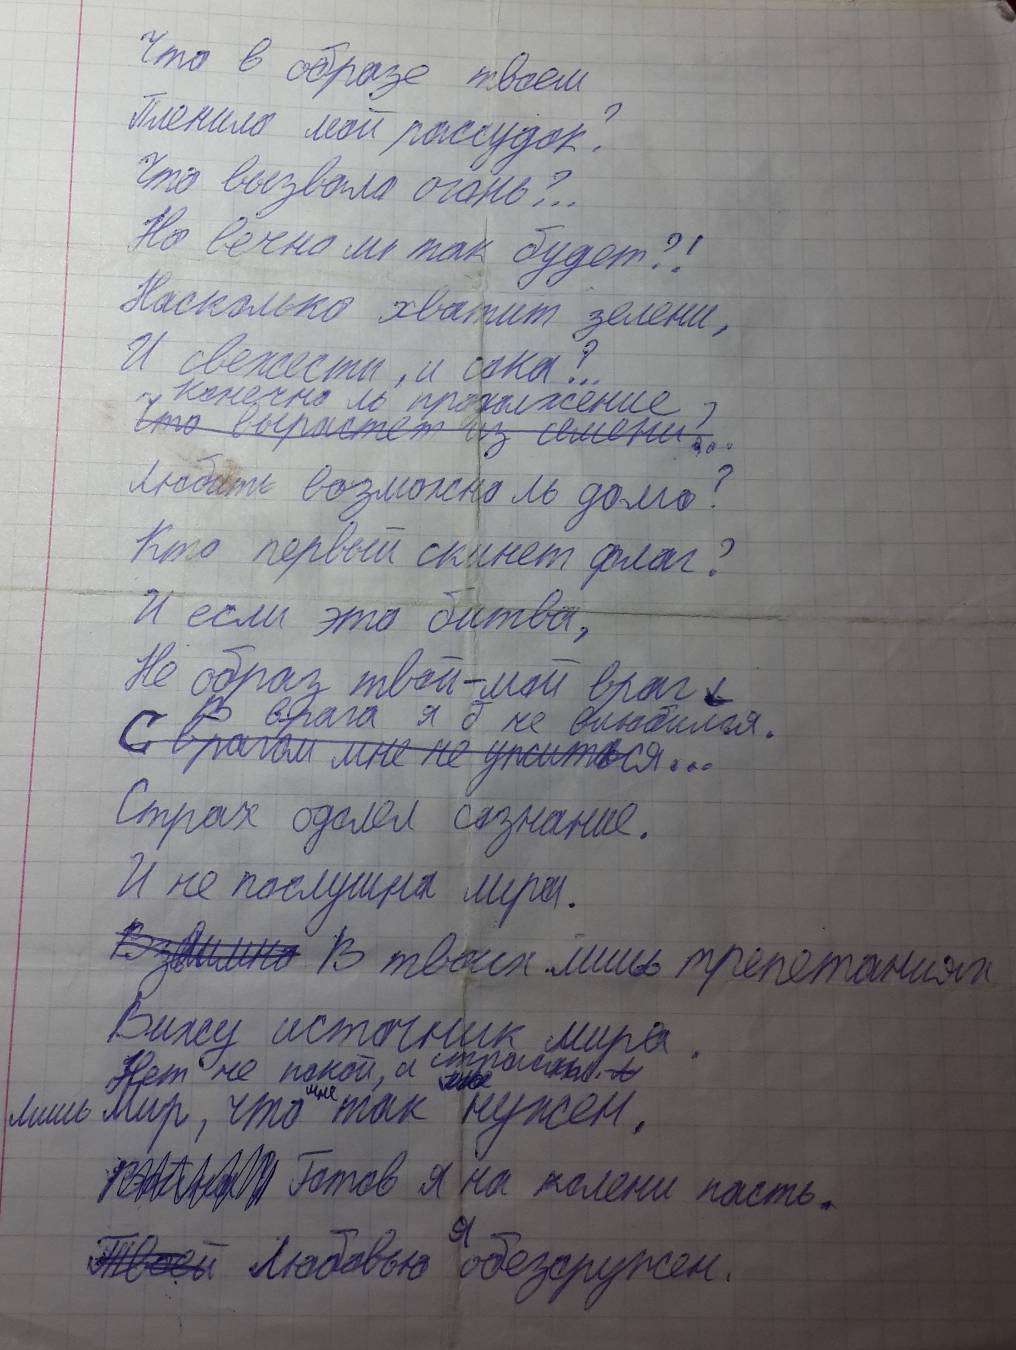 Что в образе твоем
Пленило мой рассудок?
Что вызвало огонь?..
Но вечно ли так будет?!
Насколько хватит зелени,
И свежести, и сока?..
Конечно ль продолжение
Что вырастет из семени?...
Любить возможно ль долго?
Кто первый скинет флаг?
И если это битва,
Не образ твой-мой враг
В врага я б не влюбился.
С врагом мне не ужиться...
Страх одолел сознание.
И не послушна лира.
Взаимно В твоих лишь трепетаниях
Вижу источник мира.
Нет не покой, а
лишь мир, что мне так нужен.
Готов я на колени пасть.
Твоей Любовью я обезоружен.